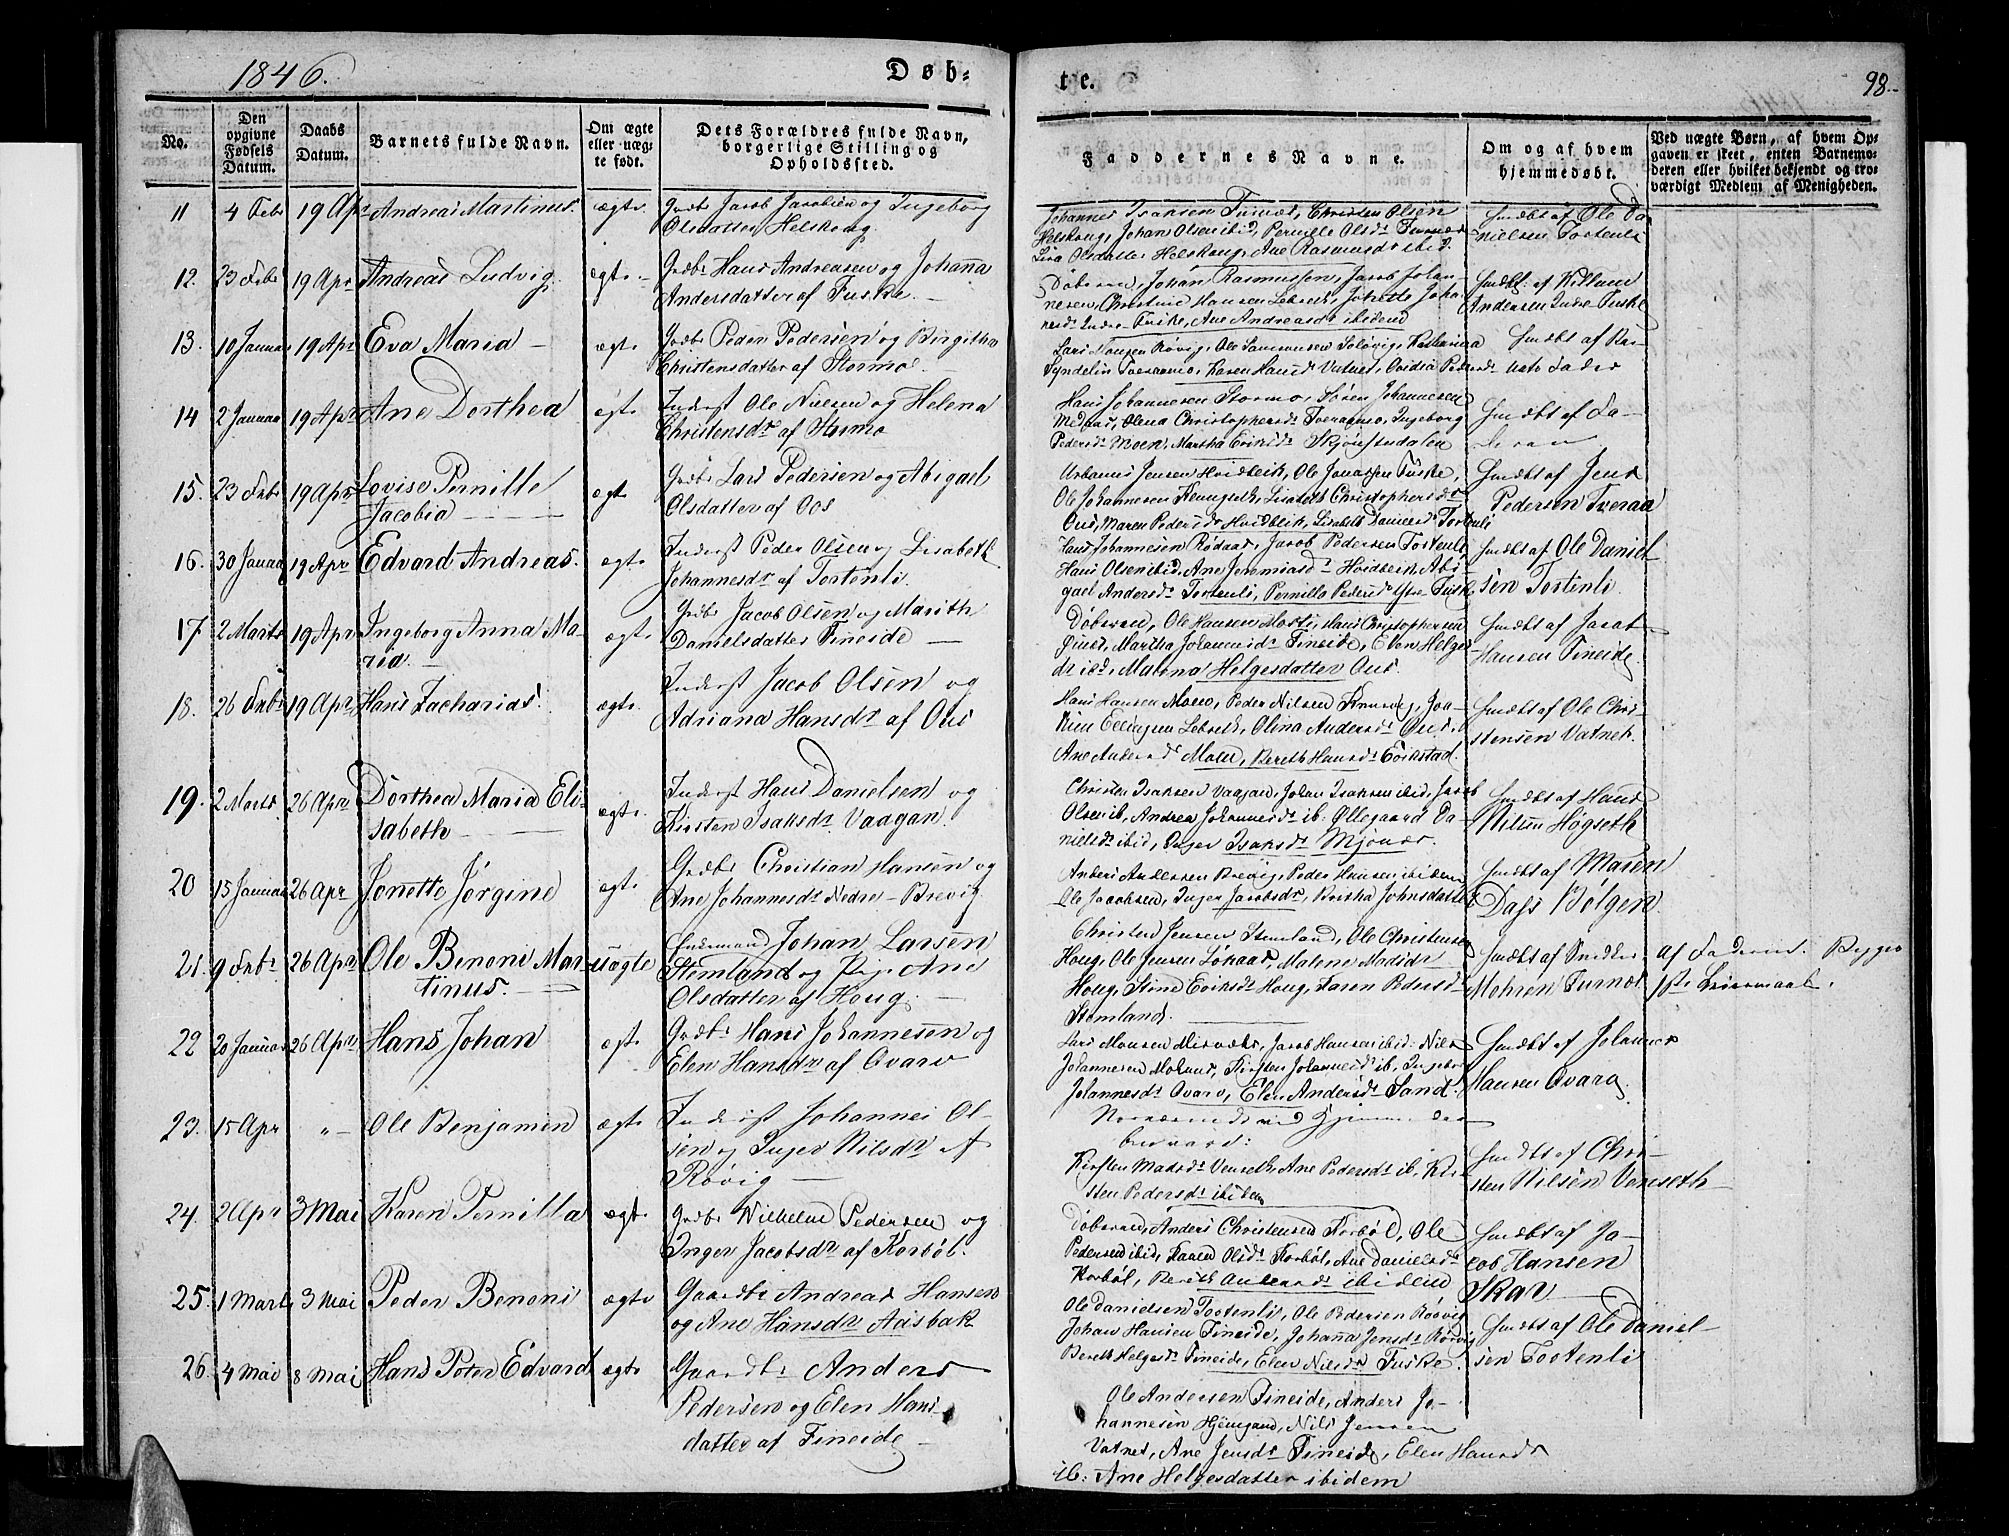 1846.
Døb-
te.
98.
No.
Den opgivne Fødsels Datum.
Daabs Datum.
Barnets fulde Navn.
Om ægte eller uægte født.
Dets Forældres fulde Navn, borgerlige Stilling og Opholdssted.
Faddernes Navne.
Om og af hvem hjemmedøbt.
Ved uægte Børn, af hvem Opgaven er skeet, enten Barnemoderen eller hvilket bekjendt og troværdigt Medlem af Menigheden.
11 4 Febr 19 Apr Andreas Martinus. ægte Grdbr Jacob Jacobsen og Ingeborg
Olsdatter Helskoug.
Johannes Isaksen Furnæs, Christen Olsen
Helskoug, Johan Olsen ibid, Pernille Olsdr Furnæs
Lisa Olsdatter Helskoug, Ane Rasmusdr ibid.
hmdbt af Ole Da-
nielsen Tortenli
12. 23 Febr 19 Apr Andreas Ludvig. ægte Grdbr Hans Andreasen og Johanna
Andersdatter af Fuske.
Døberen, Johan Rasmussen, Jacob Johan-
nesen, Christine Hansen
Fuske, Ane Andreasdr ibidem
hmdbt af Willum
Andersen Indre Fuske
13. 10 Januar 19 Apr Eva Maria ægte Grdbr Peder Pedersen og Birgitha
Christensdatter af Stormo.
Røvig, Ole Solovig,
Karen Hansdr Vatnet, Ovidia Pedersdr
hmdbt af
Fader
14 2 Januar 19 Apr Ane Dorthea ægte Inderst Ole Nielsen og Helena
Christensdr af Stormo
Hans Johannesen Stormo, Søren Johannesen
Medaas, Olena Christophersdr Ingeborg
Pedersdr Moen, Martha Eriksdr Skjønstudalen
hmdbt af Fa-
deren
15. 23 Febr 19 Apr Lovise Pernille
Jacobia
ægte Grdbr Lars Pedersen og Abigael
Olsdatter af Oos
Urbanus Jensen Hvidbleik, Ole Jonassen Fuske,
Ole Johannesen Lisabeth Christophersdr
Ous, Maren Pedersdr Hvidbleik, Lisabeth Danielsdr Tortenli
hmdbt af Jens
Pedersen Tveraa
16. 30 Januar 19 Apr Edvard Andreas. ægte Inderst Peder Olsen og Lisabeth
Johannesdr af Tortenli.
Hans Johannesen Rødaas, Jacob Pedersen Tortenli
Hans Olsen ibid, Ane Jeremiasdr Hvidbleik, Abi-
gael Andersdr Tortenli, Pernilla Pedersdr Ytre Fuske
hmdbt af Ole Daniel-
sen Tortenli.
17. 2 Marts 19 Apr Ingeborg Anna Ma-
ria.
ægte Grdbr Jacob Olsen og Marith
Danielsdatter Fineide
Døberen, Ole Hansen Mosti, Hans Christophersen
Martha Johannesdr Fineide, Elen Helges-
dr ibd. Malena Helgesdatter Ous.
hmdbt af Jacob
Hansen Fineide
18. 26 Febr 19 Apr Hans Zacharias. ægte. Inderst Jacob Olsen og
Adriana Hansdr af Ous
Hans Hansen Moen, Peder Nilsen Joa-
kim Ellingsen Olina Andersdr Ous,
Ane Andersdr Moen, Bereth Hansdr
hmdbt af Ole Chri-
stensen Vatnet.
19. 2 Marts. 26 Apr Dorthea Maria Eli-
sabeth
ægte. Inderst Hans Danielsen og
Kirsten Isaksdr Vaagan.
Christen Isaksen Vaagan, Johan Isaksen ibid, Jacob
Olsen ib, Andrea Johannesdr ib. Ollegaard Da-
nielsdr ibid, Inger Isaksdr Mjønes.
hmdbt af Hans
Nilsen Høgseth
20 15 Januar 26 Apr Jonette Jørgine ægte Grdbr Christian Hansen og
Ane Johannesdr Nedre-Brevig
Anders Andersen Brevig, Peder Hansen ibidem
Ole Jacobsen, Inger Jacobsdr, Beritha Johnsdatter
hmdbt af Maren
Dass Bølgen.
21. 9 Febr 26 Apr Ole Benoni Mar-
tinus.
uægte Enkemand Johan Larsen
Stemland og Pige Ane
Olsdatter af Houg.
Christen Jensen Stemland, Ole Christensen
Houg, Ole Jensen Løkaas, Malene Madsdr
Houg, Stine Eriksdr Houg, Karen Pedersdr
Stemland.
hmdbt af Snedker
Mohren Furnæs
af Faderen. Begges
1ste Leiermaal.
22 20 Januar 26 Apr Hans Johan ægte Grdbr Hans Johannesen og
Elen Hansdr af Qvarv
Lars Monsen Misvær, Jacob Hansen ibid. Nils
Johannesen Kirsten Johannesdr ib, Ingeborg
Johannesdr Qvarv, Elen Andersdr Sand.
hmdbt af Johannes
Hansen Qvarv.
23. 15 Apr „ - Ole Benjamin ægte Inderst Johannes Ol-
sen og Inger Nilsdr af
Røvig
Nærværende ved Hjemmedaa-
ben vare:
Kirsten Madsdr Venseth, Ane Pedersdr ib, Kir-
sten Pedersdr ibidem
hmdbt af Chri-
sten Nilsen Venseth
24. 2 Apr 3 Mai Karen Pernilla ægte Grdbr Wilhelm Pedersen og
Inger Jacobsdr af Korbøl.
Døberen, Anders Christensen Korbøl, Ole
Pedersen ibid, Karen Olsdr Korbøl, Ane Danielsdr
Korbøl, Bereth Andersdr ibidem
hmdbt af Ja-
cob Hansen
Skar
25. 1 Marts 3 Mai Peder Benoni ægte Gaardbr Andreas Hansen
og Ane Hansdr Aasbak
Ole Danielsen Tortenli, Ole Pedersen Røvig
Johan Hansen Fineide, Johanna Jensdr Røvig
Bereth Helgesdr Fineide, Elen Nilsdr Fuske.
hmdbt af Ole Daniel-
sen Tortenli
26. 4 Mai 8 Mai Hans Peter Edvard ægte Gaardbr Anders
Pedersen og Elen Hans-
datter af Fineide
Ole Andersen Fineide, Anders Jo-
hannesen Hjemgaard, Nils Jensen
Vatnet, Ane Jensdr Fineide, Elen Hansdr
ib: Ane Helgesdatter ibidem